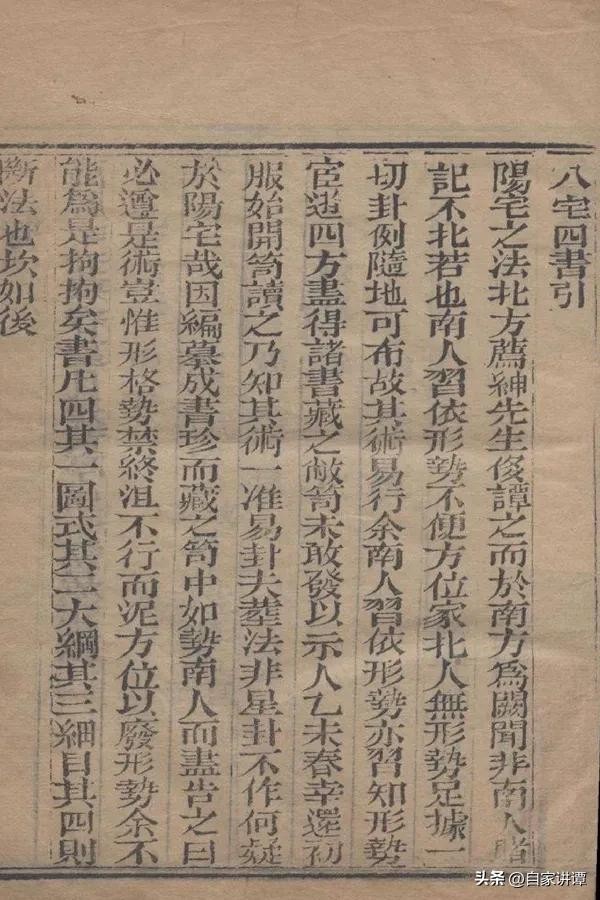 八宅四書引
陽宅之法北方薦紳先生俊譚之而於南方為闕聞非南人
記不北若也南人習依形勢不便方位家北人無形勢足據一
切卦例隨地可布故其術易行余南人習依形勢亦習知形勢
宦遊四方盡得諸書藏之敝笥未敢發以示人乙未春幸還初
服始開笥讀之乃知其術一准易卦夫葬法非星卦不作何疑
於陽宅哉因編摹成書珍而藏之笥中如勢南人而盡告之曰
必遵是術豈惟形格勢禁終沮不行而泥方位以廢形勢余不
能為是拘拘矣書凡四其一圖式其二大綱其三細目其四則
斷法也坎如後
头条 @自家讲谭